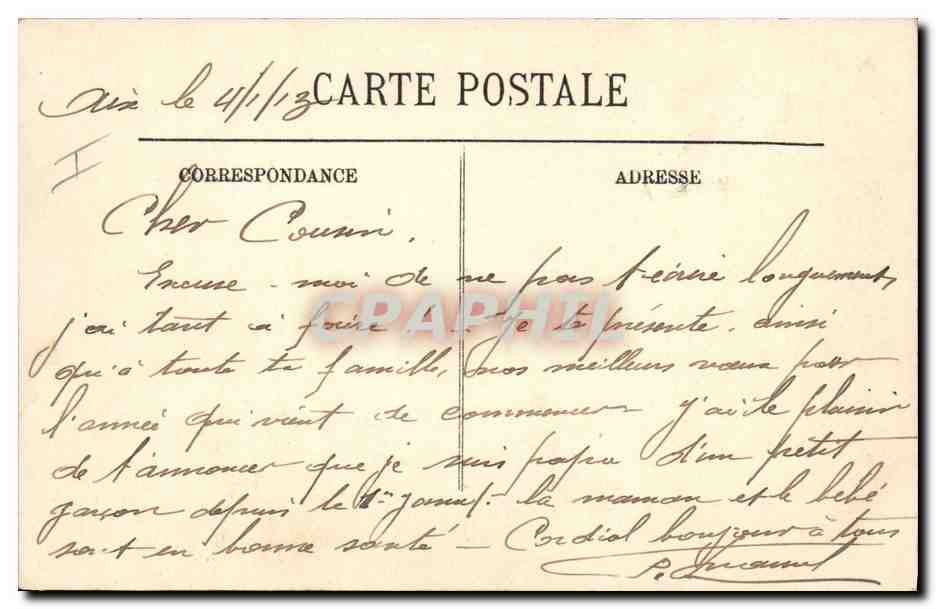 Aix le 4/1/13
CARTE POSTALE
I
CORRESPONDANCE
ADRESSE
Cher Cousin,
Excuse-moi de ne pas t'écrire longuement,
j'ai tant à faire ! - Je te présente, ainsi
CPARHIL
qu'à toute ta famille, nos meilleurs vœux pour
l'année qui vient de commencer - J'ai le plaisir
de t'annoncer que je suis papa d'un petit
garçon depuis le 1er Janv. - la maman et le bébé
sont en bonne santé - Cordial bonjour à tous